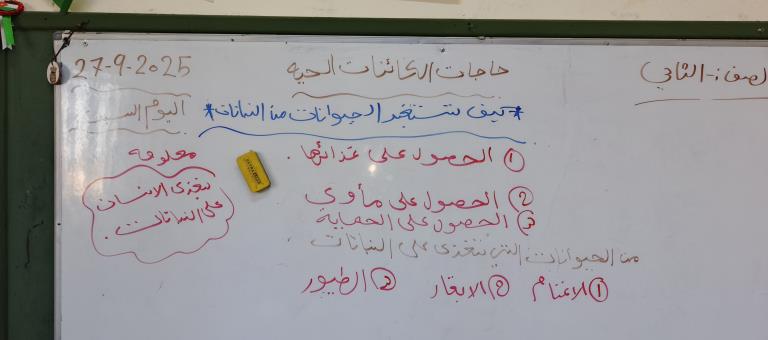 الصف: الثاني
حاجات الكائنات الحيه
27-9-2025
اليوم السبت
*كيف تستفيد الحيوانات من النباتات*
① الحصول على غذائها.
② الحصول على مأوى
③ الحصول على الحماية
من الحيوانات التي تتغذى على النباتات
① الاغنام ② الابقار ③ الطيور
معلومه
يتغذى الانسان
على النباتات.